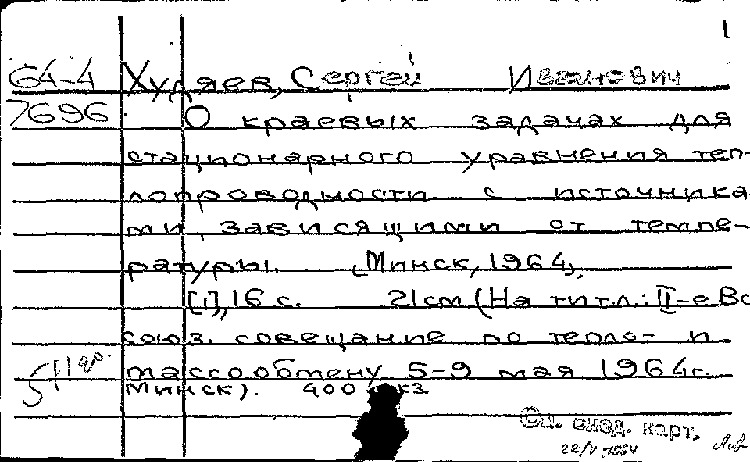 1
64-4 Худяев, Сергей Иванович
7696 О краевых задачах для
стационарного уравнения теп-
лопроводности с источника
ми, зависящими от темпе-
ратуры. (Минск, 1964).
[1], 16 с. 21см (На тит.л.: II-е Вс
союз. совещание по тепло- и
массообмену 5-9 мая 1964г.
Минск). 400 экз
См. анод. карт.